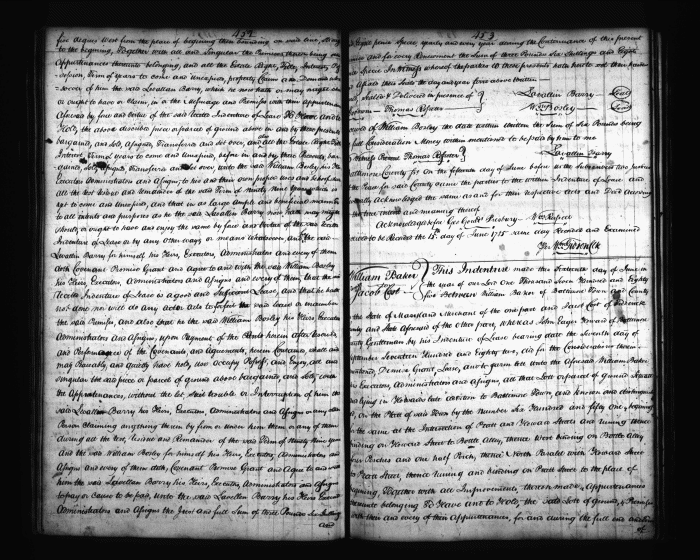 454
five degrees West from the place of beginning then bounding on said line
to the beginning, Together with all and Singular the Premises thereon being and
Appurtenances thereunto belonging, and all the Estate Right, Title, Interest,
Term of years to come and unexpired, property Claim and Demand
of him the said Lavallin Barry, which he now hath or may
or ought to have or Claim, in a Messuage and Premises with their appurtenances
Aforesaid by force and virtue of the said recited Indenture of Lease To Have and to
Hold, the above described piece or parcel of ground above in and by these presents
bargained, and Sold, Assigned, Transferred and Set over, and all the Estate Right Title
Interest Term of years to come and unexpired, before in and by these Presents
Sold, Assigned, Transferred and Set over, unto the said William Bosley his
Executors Administrators and Assigns, to his and their own proper use and behoof
all the rest residue and remainder of the said Term of Ninety Nine Years
yet to come and unexpired, and that in as large ample and beneficial manner
to all intents and purposes as he the said Lavallin Barry now hath, may might
should, or ought to have and enjoy the same by force and virtue of the said recited
Indenture of Lease or by any other ways or means whatsoever, and the said
Lavallin Barry for himself, his Heirs, Executors, Administrators and every of them
doth Covenant Promise Grant and Agree to and with the said William Bosley
his Heirs, Executors, Administrators and Assigns and every of them, that the
recited Indenture of Lease is a good and Sufficient Lease, and that he hath
not done nor will do any act or acts to forfeit the said lease or incumber
the said Premises, And also that he the said William Bosley his Heirs Executors
Administrators and Assigns, upon Payment of the Rents herein after reserved
and Performance of the Covenants and Agreements, herein Contained, shall and
may Peaceably, and Quietly have hold, use Occupy Possess, and Enjoy, all and
singular the said piece or parcel of ground above bargained, and Sold, with
the Appurtenances, without the let, Suit trouble or Interruption of him the
said Lavallin Barry his Heirs, Executors, Administrators and Assigns or any other
Person Claiming anything therein by from or under him them or any of them
during all the rest, residue and Remainder of the said Term of Ninety Nine years
And the said William Bosley for himself his Heirs, Executors, Administrators and
Assigns and every of them doth, Covenant Promise Grant and Agree to and with
him the said Lavallin Barry his Heirs, Executors, Administrators and Assigns
to pay or cause to be paid, unto the said Lavallin Barry his Heirs Executors
Administrators and Assigns the Just and full Sum of three Pounds Six Shillings
and
453
pence Specie, yearly and every year during the Continuance of this present
and for every Renewment the Sum of three Pounds Six Shillings and Eight
Specie In Witness whereof the parties to these presents hath hereto set their hands
and Affixed their Seals the day and year first above written
Sealed & Delivered in presence of } Lavallin Barry (Seal)
Thomas Rossiter } Wm. Bosley (Seal)
of William Bosley the date within written the Sum of Six Pounds being
full Consideration Money within mentioned to be paid by him to me
Witness Present Thomas Rossiter } Lavallin Barry
Baltimore County Sct. On the fifteenth day of June before us the Subscribers two Justices
the Peace for said County came the parties to the within Indenture of Lease and
severally Acknowledged the same as and for their respective Act and Deed according
to the true intent and meaning thereof
Acknowledged before Geo: Gould: Presbury - Wm. Russell
to be Recorded the 15th. day of June 1785 same day Recorded and Examined
Per Wm. Gibson Clk
William Baker } This Indenture made this Fifteenth day of June in
Jacob Cost } the year of our Lord One Thousand Seven Hundred and Eighty
five Between William Baker of Baltimore Town and County
the State of Maryland Merchant of the one part and Jacob Cost of Frederick
County and State Aforesaid of the other part, Whereas John Eager Howard of Baltimore
County Gentleman by his Indenture of Lease bearing date the Seventh day of
September Seventeen Hundred and Eighty two, did for the Consideration therein
mentioned, Demise Grant Lease, and to farm let unto the Aforesaid William Baker
his Executors, Administrators and Assigns, all that Lott or parcel of Ground Situate
and lying in Howards late addition to Baltimore Town and known and distinguished
on the Plat of said Town by the Number Six Hundred and fifty One, beginning
the same at the Intersection of Pratt and Howard Streets and running thence
binding on Howard Street to Bottle Alley, thence West binding on Bottle Alley
four Perches and one half Perch, thence North Paralel with Howard Street
to Pratt Street, thence running and binding on Pratt Street to the place of
Beginning, Together with all Improvements, thereon made & Appurtenances
thereunto belonging To Have and to Hold, the said Lott of Ground, & Premises
with their and every of their Appurtenances, for and during the full end and term
of